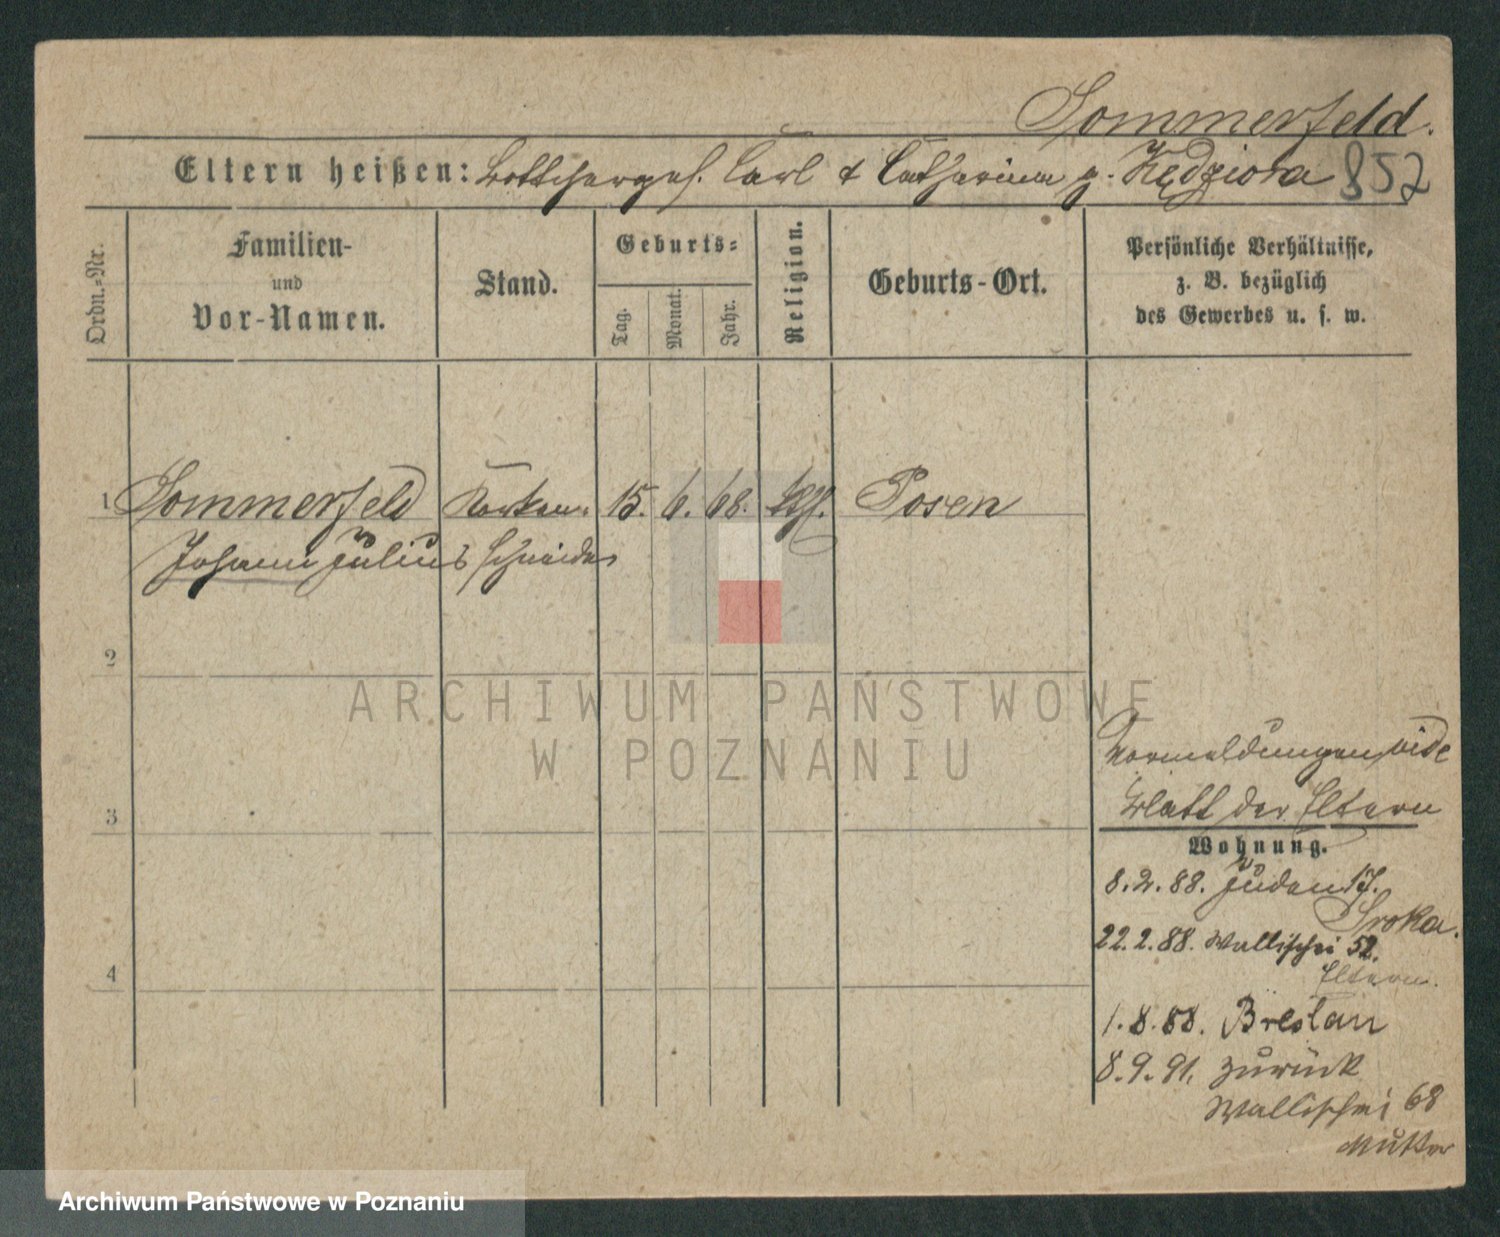 Sommerfeld.
Eltern heißen: Böttcherges. Carl & Catharina g. Kędziora 852
Ordn.-Nr.
Familien-
und
Vor-Namen.
Stand.
Geburts-
Tag.
Monat.
Jahr.
Religion.
Geburts-Ort.
Persönliche Verhältnisse,
z. B. bezüglich
des Gewerbes u. s. w.
1 Sommerfeld Korken- 15. 6. 68. kth. Posen
Johann Julius schneider
2
3
4
Vormeldungen vide
Blatt der Eltern
Wohnung.
8.2.88. Juden 17.
Sroka.
22.2.88. Wallischei 52.
Eltern.
1.8.88. Breslau
8.9.91. zurück
Wallischei 68
Mutter
ARCHIWUM PAŃSTWOWE
W POZNANIU
Archiwum Państwowe w Poznaniu